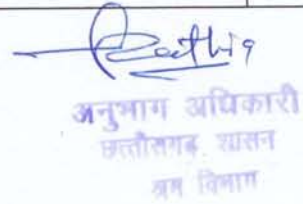 अनुभाग अधिकारी
छत्तीसगढ़ शासन
श्रम विभाग